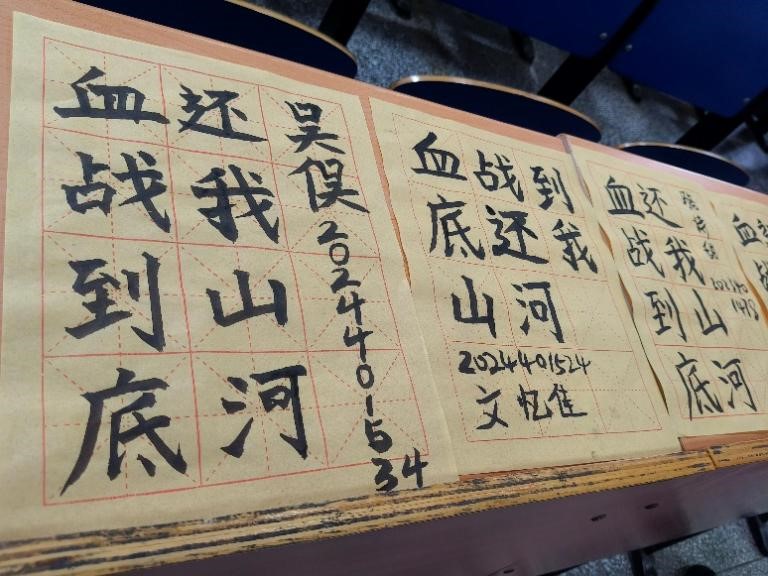 血战到底
还我山河
吴俣2024401534
血战到
底还我
山河
2024401524
文忆佳
血战到底
还我山河
血战